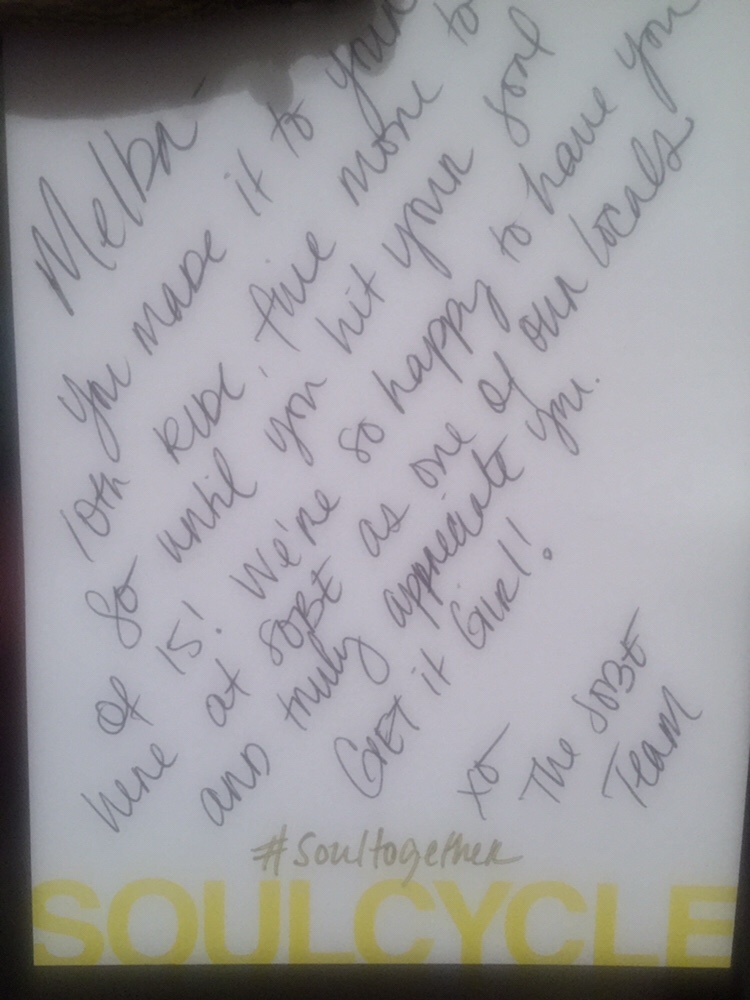 Melba -
You made it to your
10th ride. five more to
go until you hit your soul
of 15! We're so happy to have you
here at SOBE as one of our locals
and truly appreciate you.
Get it Girl!
xo
The SOBE
Team
#soultogether
SOULCYCLE